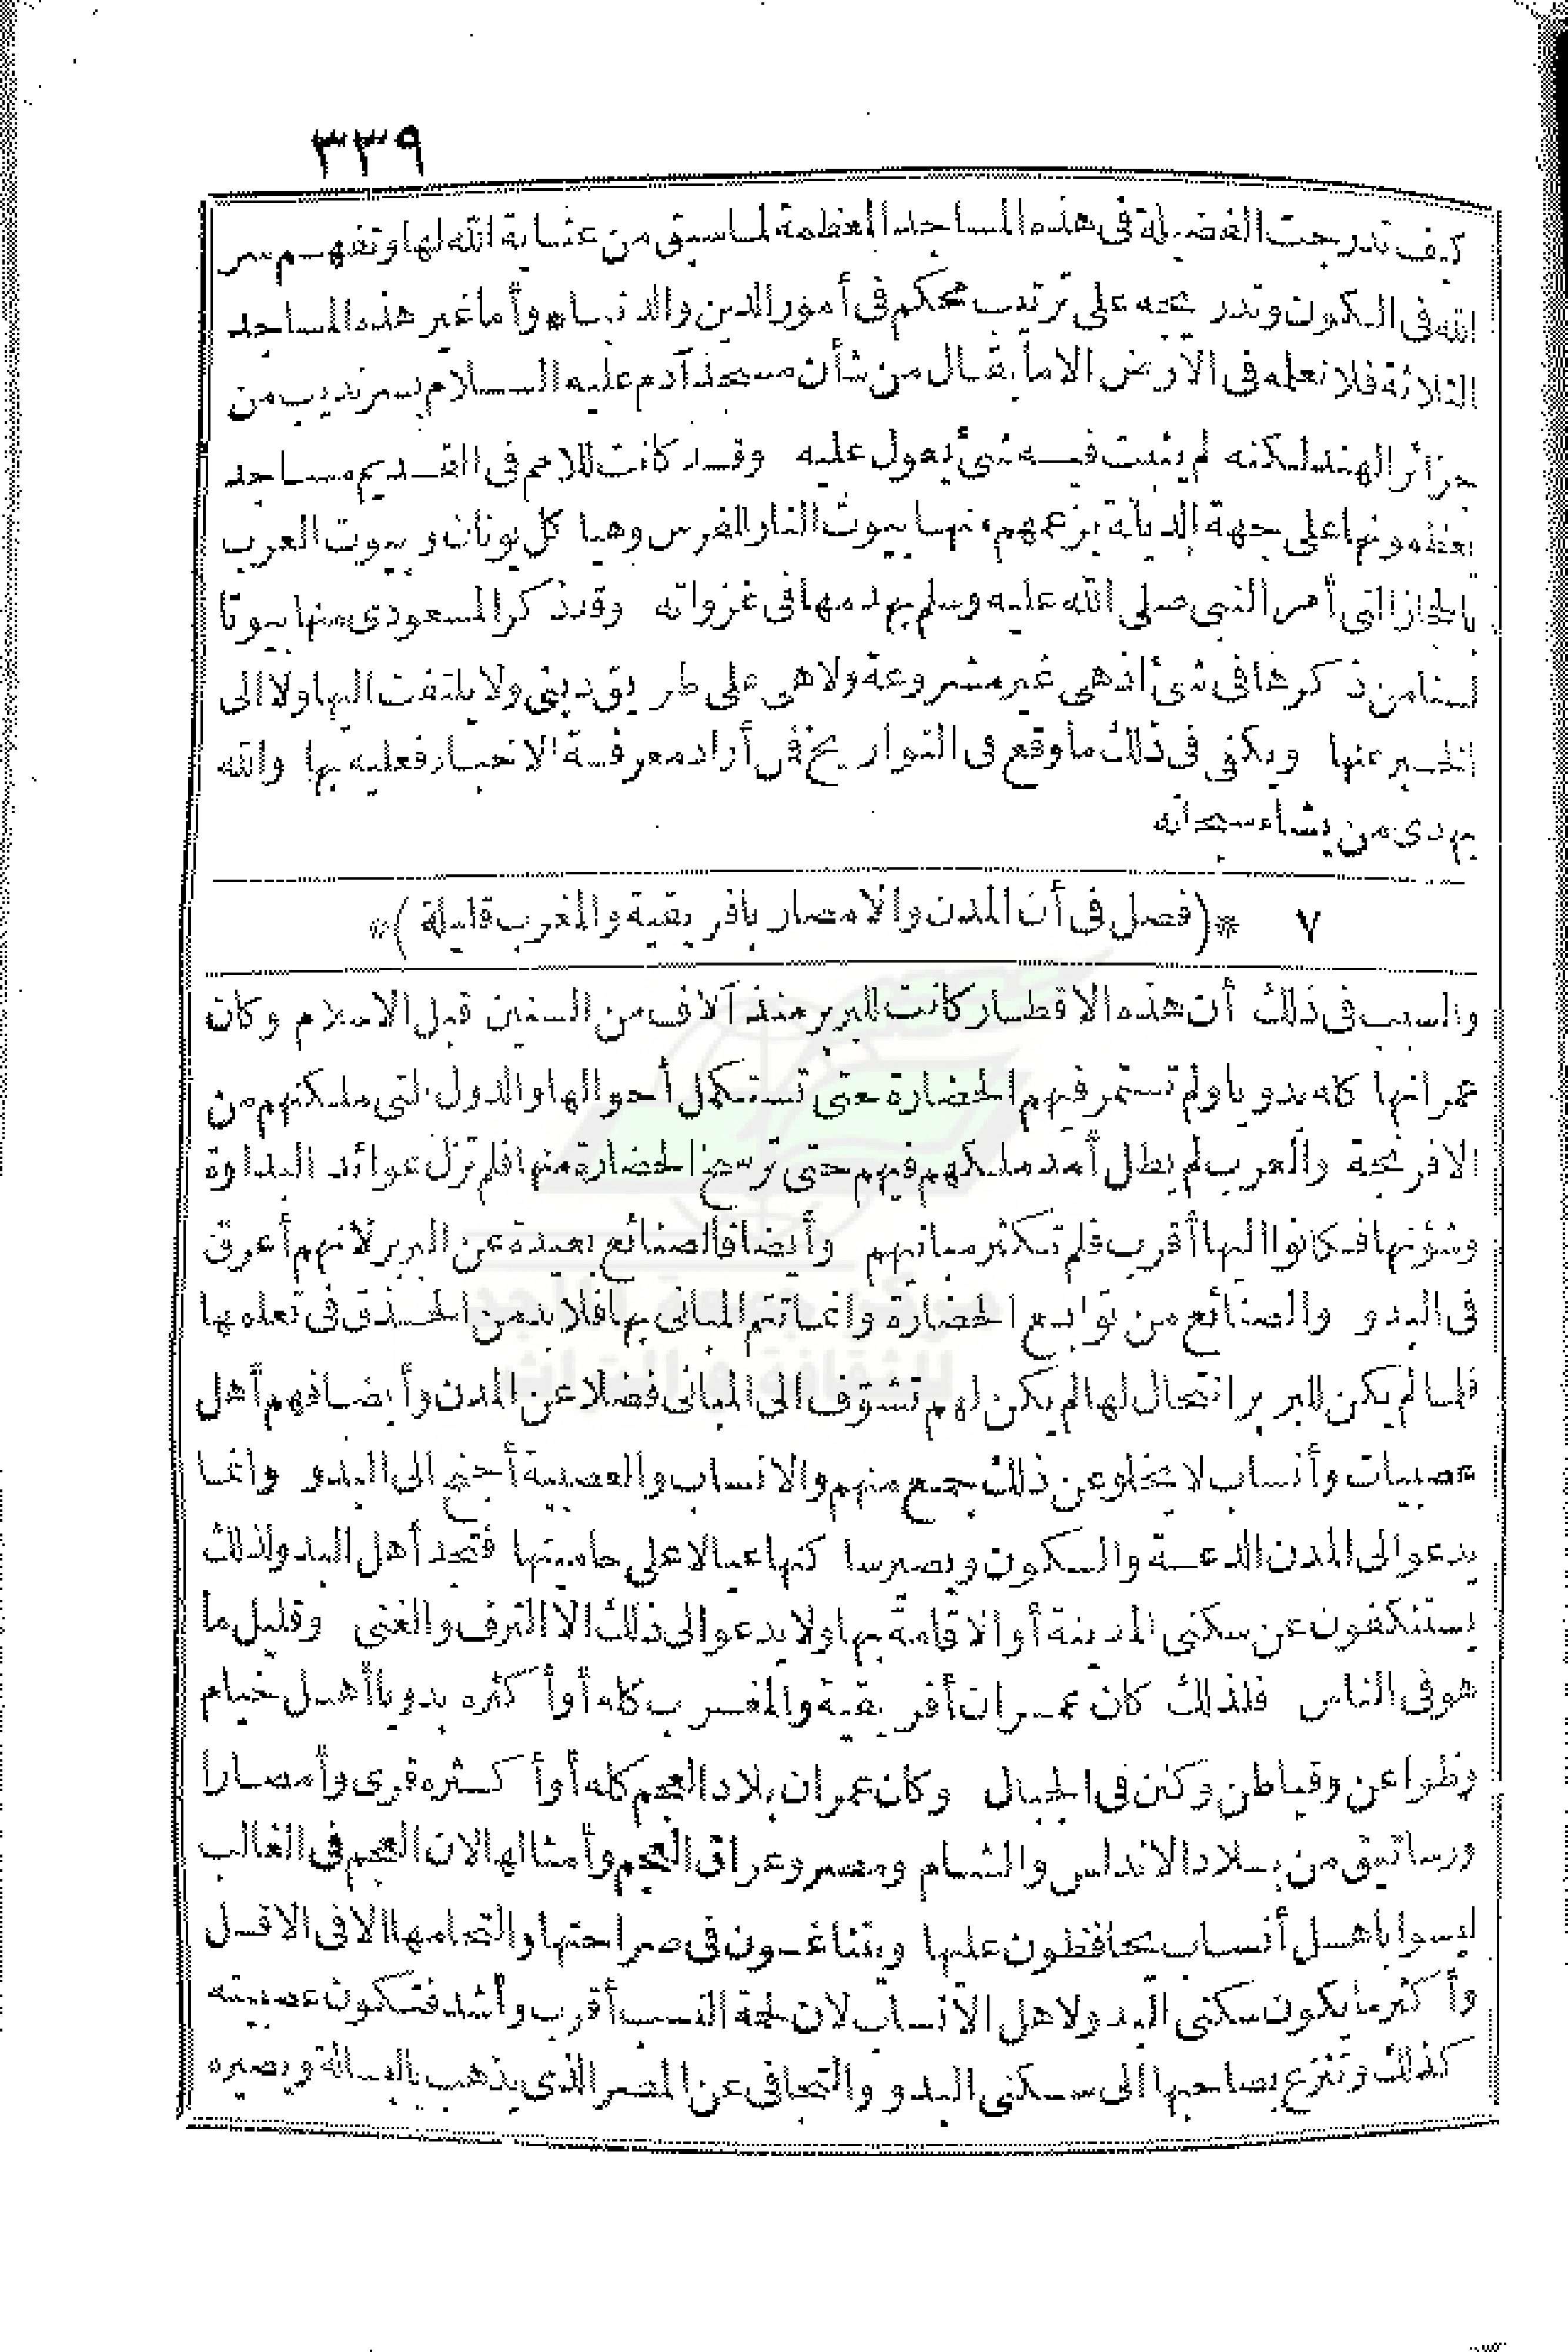 ٣٣٩
كيف تدرجت الفضيلة فى هذه المساجد المعظمة لما سبق من عناية الله لها وتفهم سر
الله فى الكون وتدريجه على ترتيب محكم فى أمور الدين والدنيا * وأما غير هذه المساجد
الثلاثة فلا نعلمه فى الارض الا ما يقال من شأن مسجد آدم عليه السلام بسرنديب من
جزائر الهند لكنه لم يثبت فيه شئ يعول عليه وقد كانت للامم فى القديم مساجد
يعظمونها على جهة الديانة بزعمهم منها بيوت النار للفرس وهياكل يونان وبيوت العرب
بالحجاز التى أمر النبى صلى الله عليه وسلم بهدمها فى غزواته وقد ذكر المسعودى منها بيوتا
لسنا من ذكرها فى شئ اذ هى غير مشروعة ولا هى على طريق دينى ولا يلتفت اليها ولا الى
الخبر عنها ويكفى فى ذلك ما وقع فى التواريخ فمن أراد معرفة الاخبار فعليه بها والله
يهدى من يشاء سبحانه
٧ *(فصل فى أن المدن والامصار بافريقية والمغرب قليلة)*
والسبب فى ذلك أن هذه الاقطار كانت للبربر منذ آلاف من السنين قبل الاسلام وكان
عمرانها كله بدويا ولم تستمر فيهم الحضارة حتى تستكمل أحوالها والدول التى ملكتهم من
الافرنجة والعرب لم يطل أمد ملكهم فيهم حتى ترسخ الحضارة منها فلم تزل عوائد البداوة
وشؤنها فكانوا اليها أقرب فلم تكثر مبانيهم وأيضا فالصنائع بعيدة عن البربر لانهم أعرق
فى البدو والصنائع من توابع الحضارة وانما تتم المبانى بها فلا بد من الحذق فى تعلمها
فلما لم يكن للبربر انتحال لها لم يكن لهم تشوّف الى المبانى فضلا عن المدن وأيضا فهم أهل
عصبيات وأنساب لا يخلو عن ذلك جمع منهم والانساب والعصبية أجنح الى البدو وانما
يدعو الى المدن الدعة والسكون ويصير ساكنها عيالا على حاميتها فتجد أهل البدو لذلك
يستنكفون عن سكنى المدينة أو الاقامة بها ولا يدعو الى ذلك الا الترف والغنى وقليل ما
هو فى الناس فلذلك كان عمران أفريقية والمغرب كله أو أكثره بدويا أهل خيام
وظواعن وقياطن وكنن فى الجبال وكان عمران بلاد العجم كله أو أكثره قرى وأمصارا
ورساتيق من بلاد الاندلس والشام ومصر وعراق العجم وأمثالها لان العجم فى الغالب
ليسوا باهل أنساب يحافظون عليها ويتناغون فى صراحتها والتحامها الا فى الاقل
وأكثر ما يكون سكنى البدو لاهل الانساب لان لحمة النسب أقرب وأشد فتكون عصبيته
كذلك وتنزع بصاحبها الى سكنى البدو والتجافى عن المصر الذى يذهب بالبسالة ويصيره
مركز جمعة الماجد
للثقافة والتراث